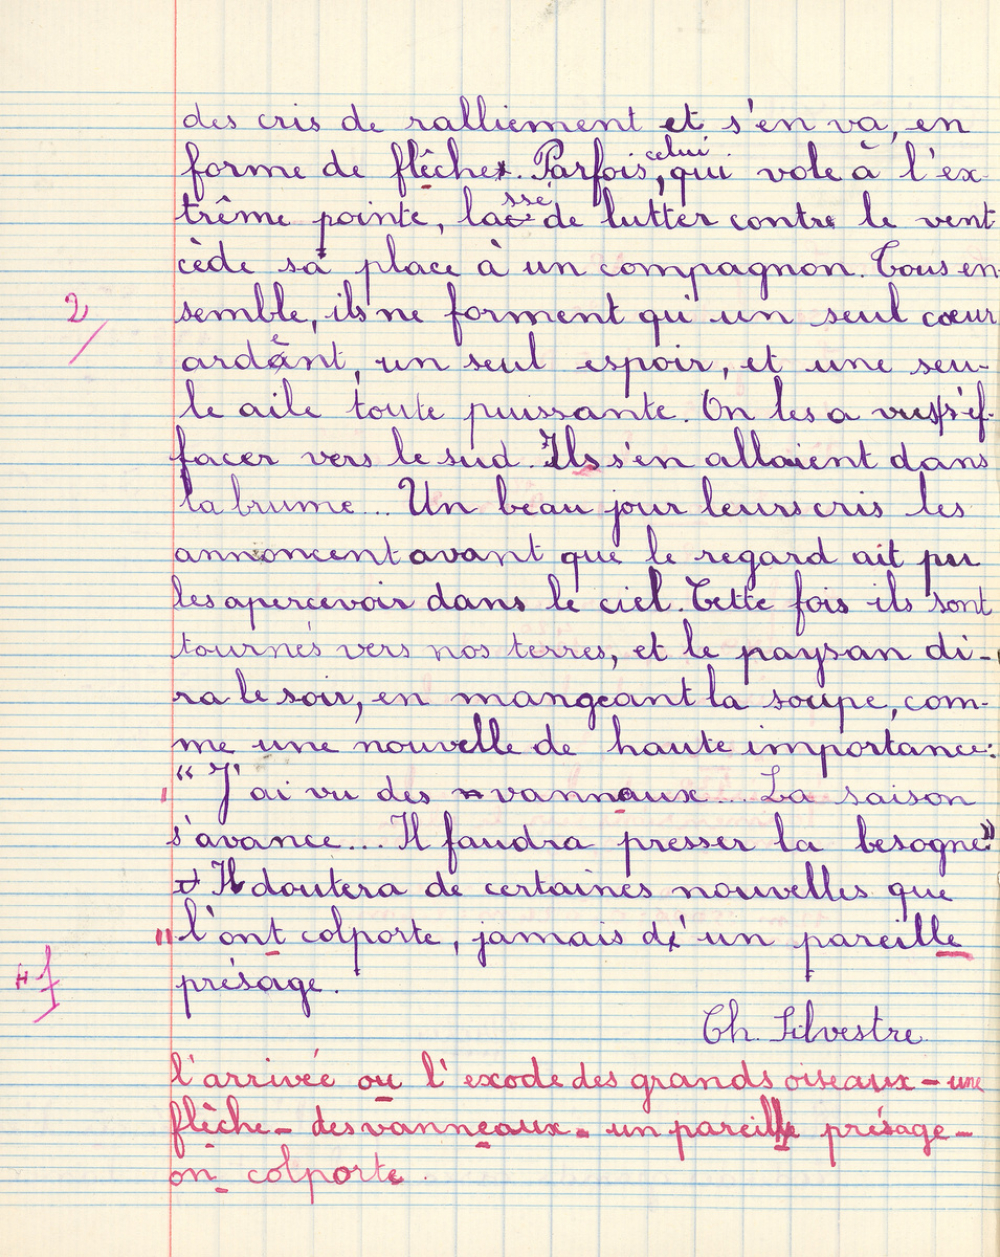 des cris de ralliement et s'en va, en
forme de flêche. Parfois, celui qui vole à l'ex-
trême pointe, lassé de lutter contre le vent
cède sa place à un compagnon. Tous en-
2 semble, ils ne forment qu'un seul cœur
ardent, un seul espoir, et une seu-
le aile toute puissante. On les a vus s'ef-
facer vers le sud. Ils s'en allaient dans
la brume... Un beau jour leurs cris les
annoncent avant que le regard ait pu
les apercevoir dans le ciel. Cette fois ils sont
tournés vers nos terres, et le paysan di-
ra le soir, en mangeant la soupe, com-
me une nouvelle de haute importance:
"J'ai vu des vannaux... La saison
s'avance... Il faudra presser la besogne"
Il doutera de certaines nouvelles que
l'ont colporte, jamais d'un pareille
présage.
Ch. Silvestre
l'arrivée ou l'exode des grands oiseaux - une
flèche - des vanneaux - un pareil présage -
on colporte.